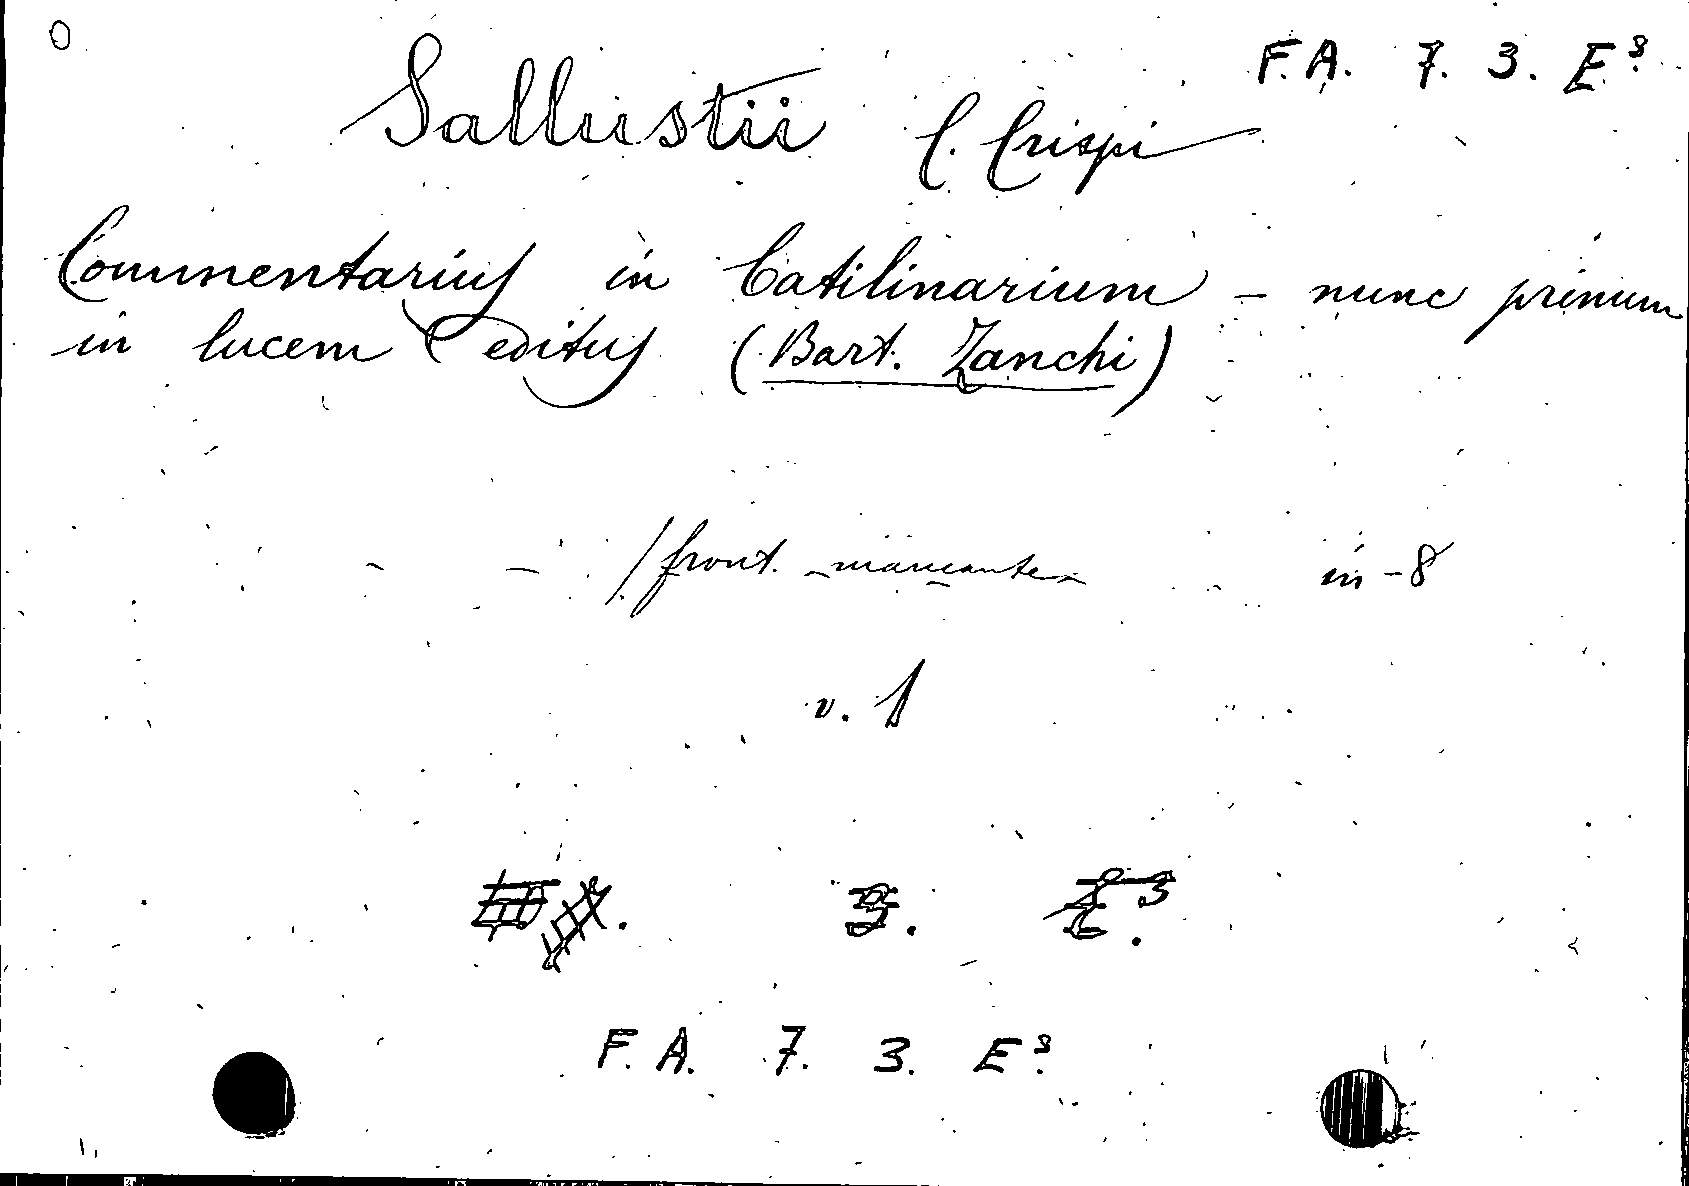 F.A. 7. 3. E⁸.
Sallustii C. Crispi
Commentarius in Catilinarium – nunc primum
in lucem editus (Bart. Zanchi)
/front. mancante – in-8
v. 1
F. A. 7. 3. E⁸.